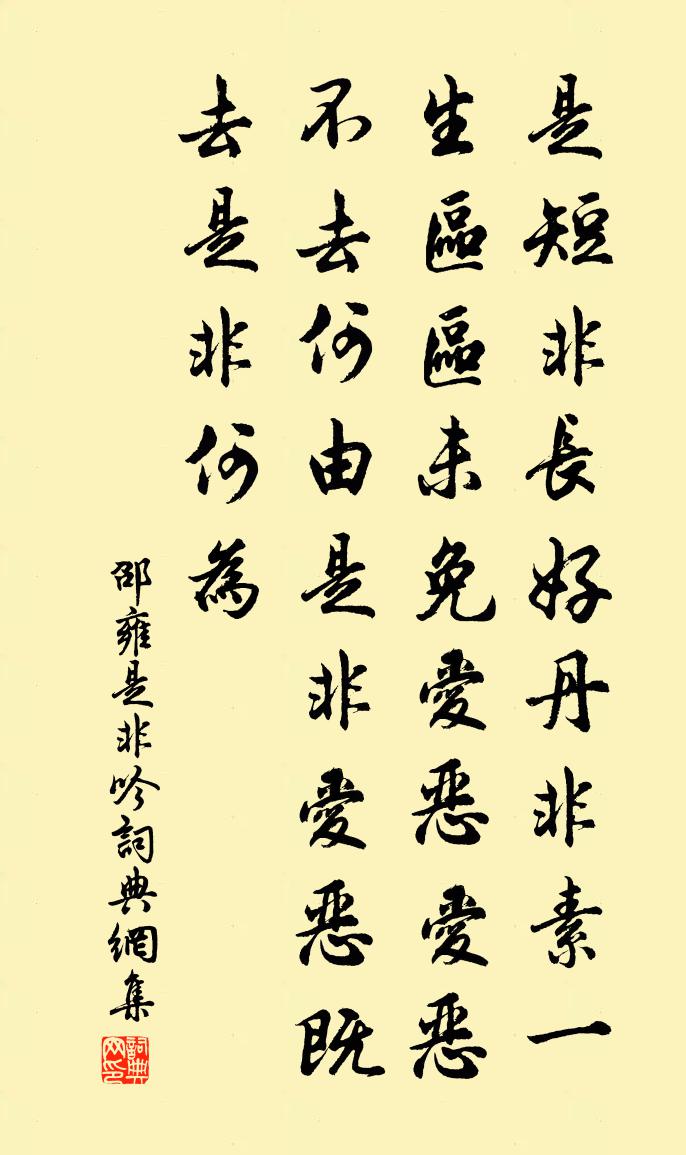 是短非長好丹非素一
生區區未免愛惡愛惡
不去何由是非愛惡既
去是非何為
邵雍是非吟詞典網集
詞典網印